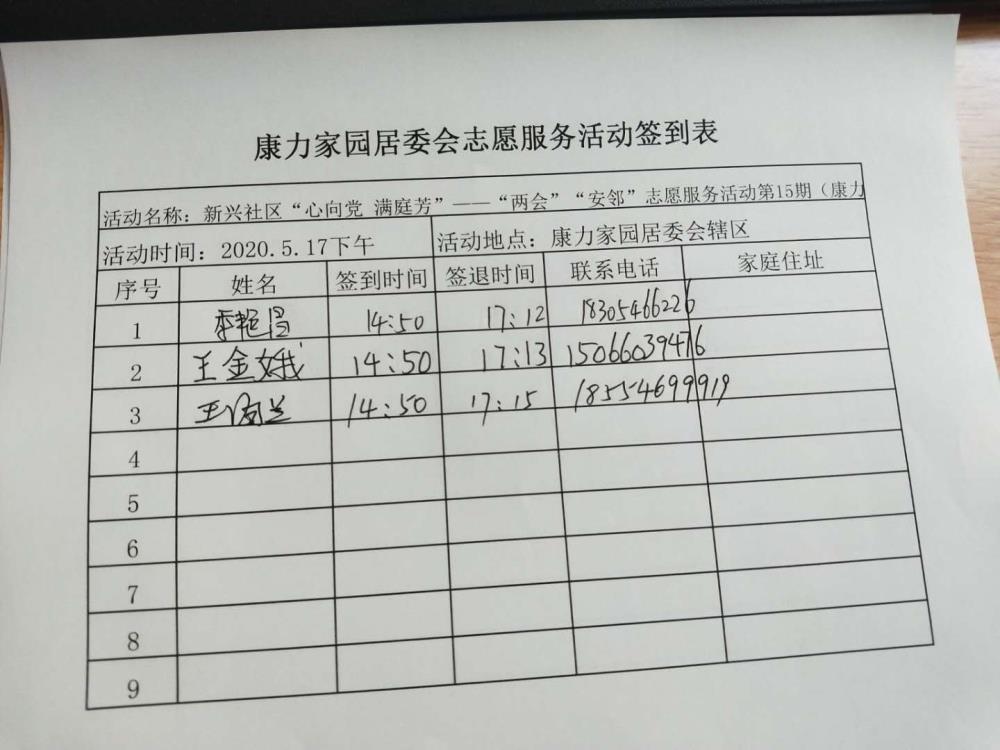 康力家园居委会志愿服务活动签到表
活动名称：新兴社区“心向党 满庭芳”——“两会”“安邻”志愿服务活动第15期（康力
活动时间：2020.5.17下午 活动地点：康力家园居委会辖区
序号 姓名 签到时间 签退时间 联系电话 家庭住址
1 14:50 17:12 18305466226
2 王金娥 14:50 17:13 15066039476
3 14:50 17:15 18554699919
4
5
6
7
8
9